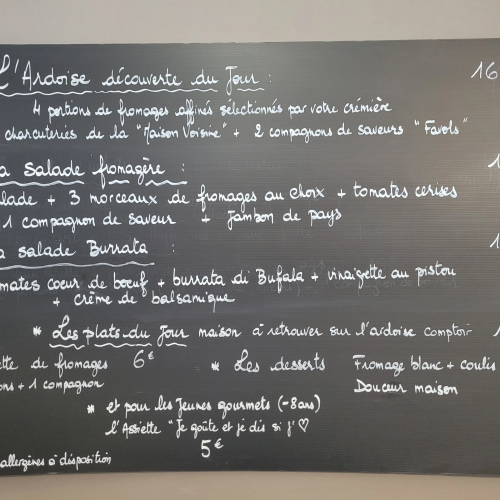 L'Ardoise découverte du Jour : 16
4 portions de fromages affinés sélectionnés par votre crémière
charcuteries de la "Maison Voisine" + 2 compagnons de saveurs "Favols"
a salade fromagère : 1
alade + 3 morceaux de fromages au choix + tomates cerises
1 compagnon de saveur + Jambon de pays
a salade Burrata : 1
mates coeur de boeuf + burrata di Bufala + vinaigette au pistou
+ crème de balsamique
* Les plats du Jour maison à retrouver sur l'ardoise comptoir 1
ette de fromages 6€ * Les desserts Fromage blanc + coulis
ons + 1 compagnon Douceur maison
* et pour les Jeunes gourmets (-8ans)
l'Assiette "Je goûte et je dis si j'♡
5€
allergènes à disposition